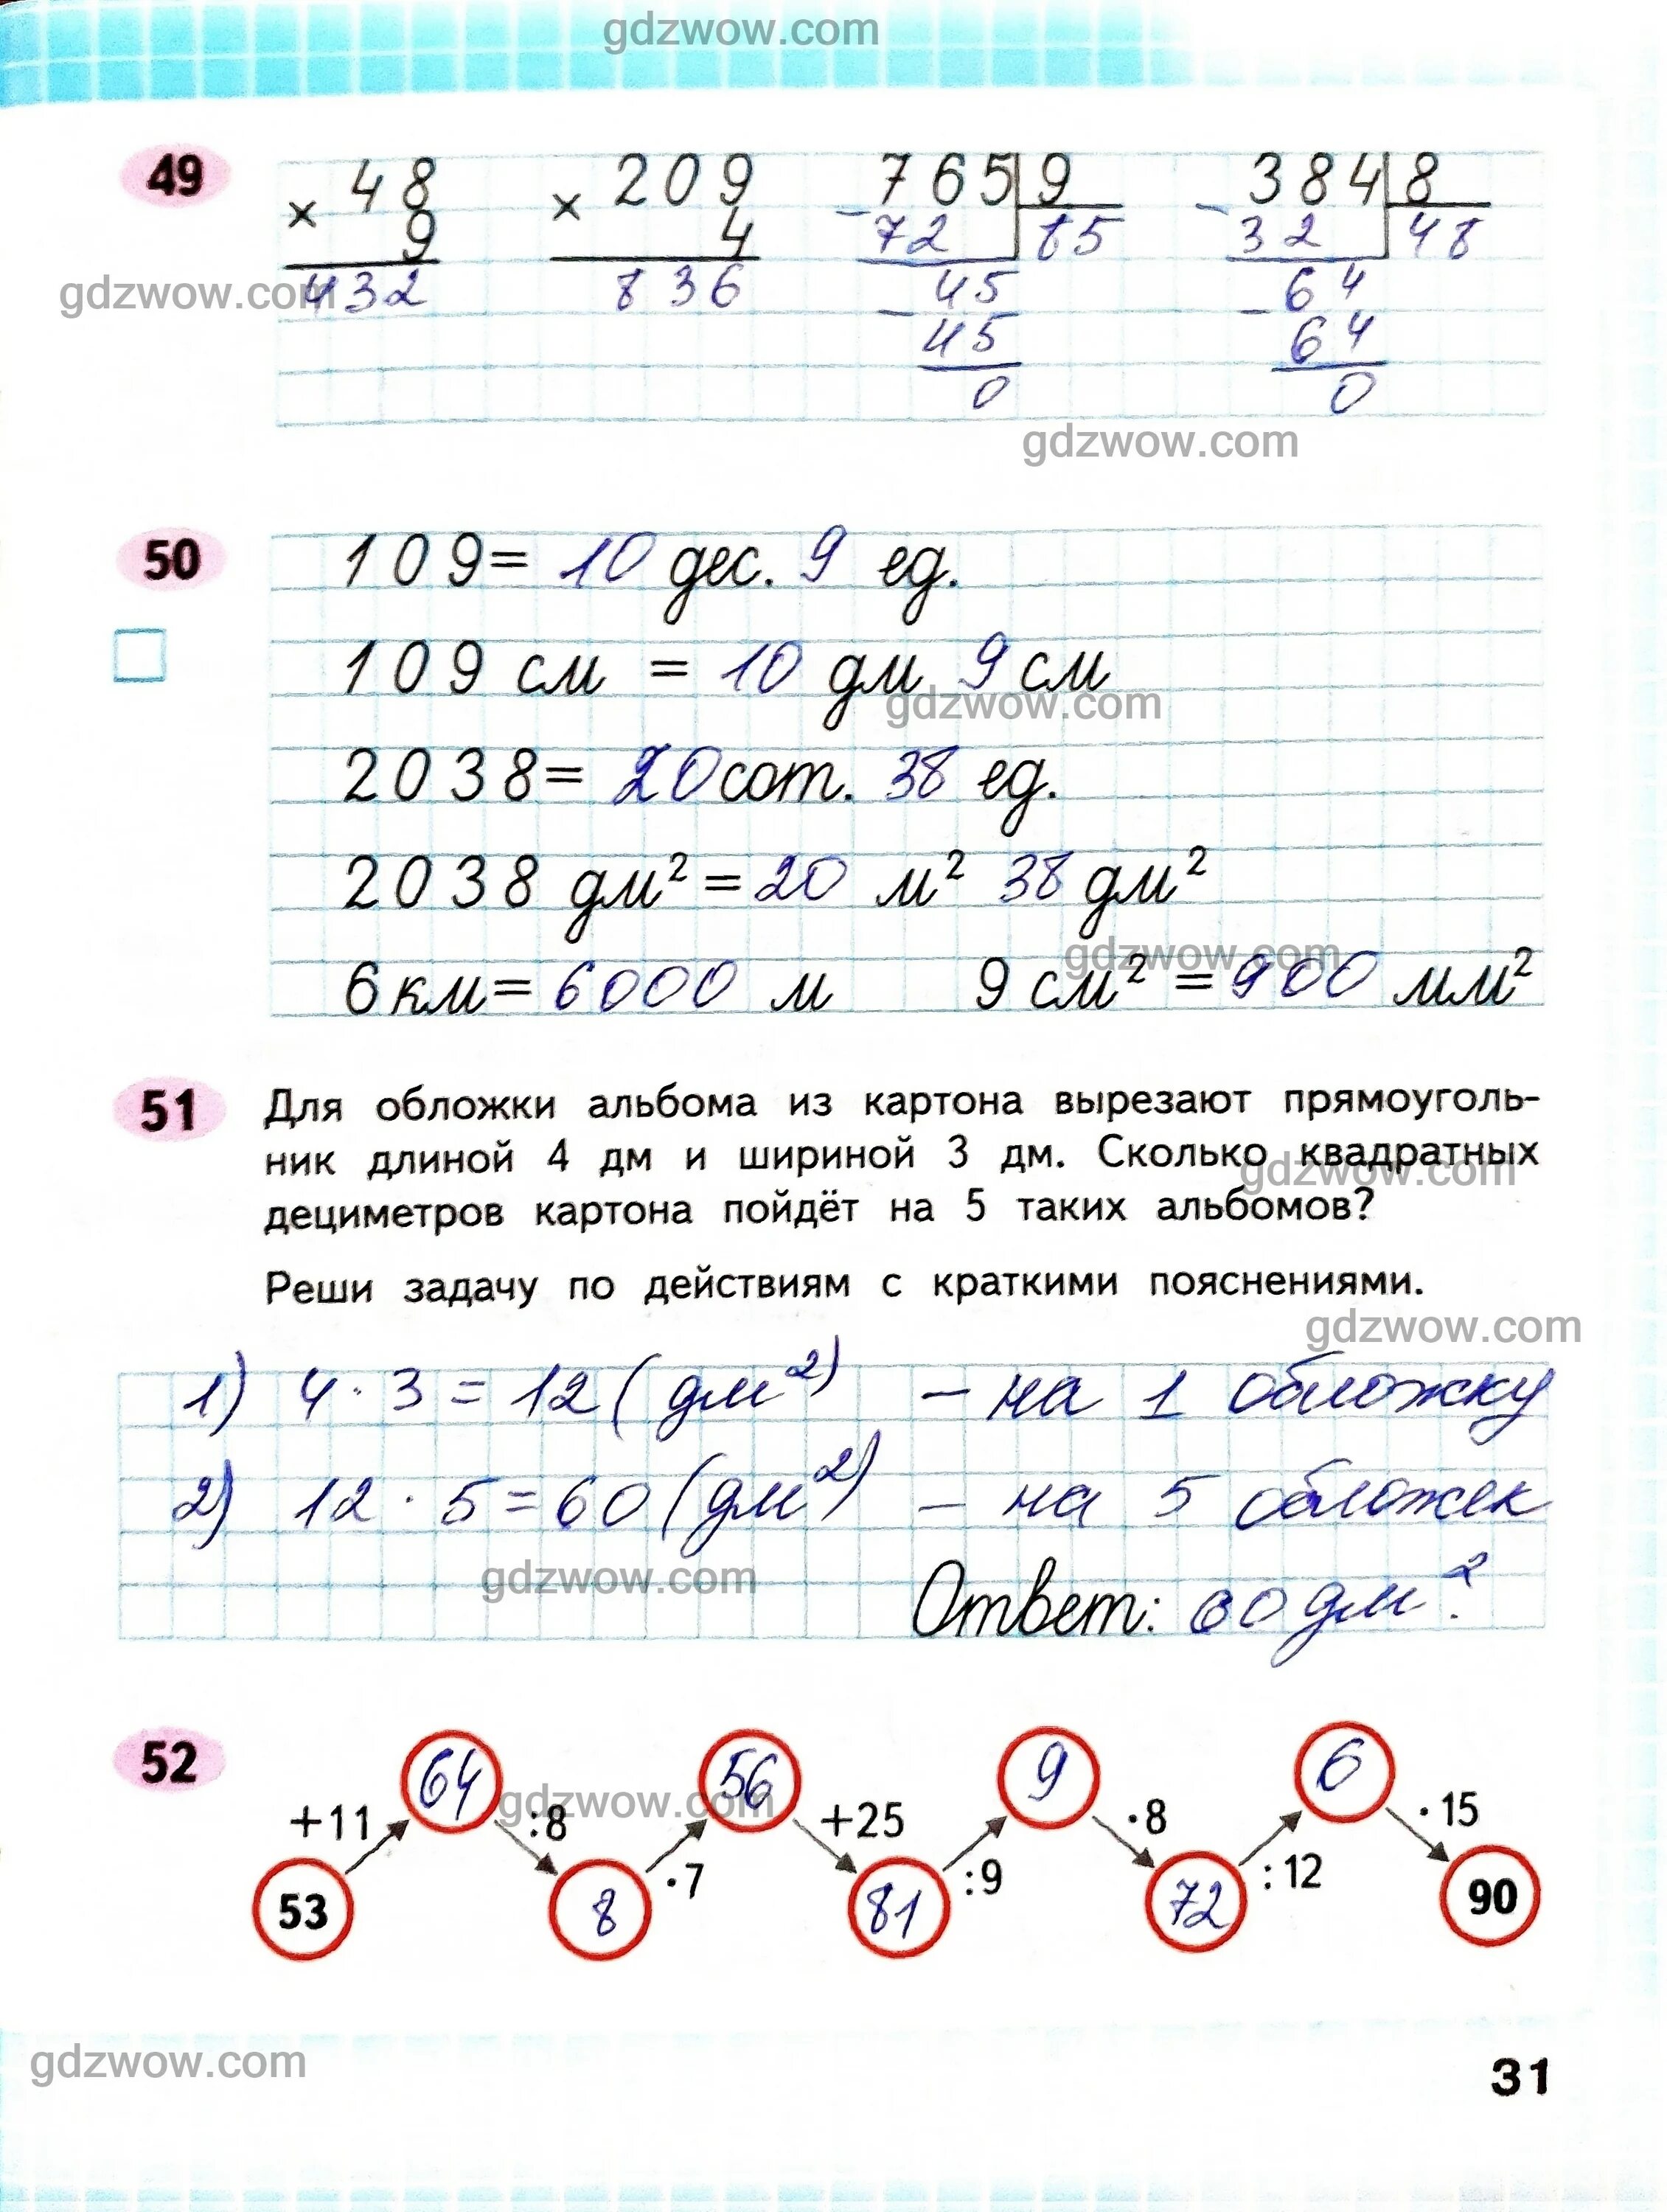 gdzwow.com
49
48 209 765 9 384 8
× 9 × 4 - 72 85 - 32 48
gdzwow.com 432 836 45 64
- 45 - 64
0 0
gdzwow.com
50 109 = 10 дес. 9 ед.
109 см = 10 дм 9 см
gdzwow.com
2038 = 20 сот. 38 ед.
2038 дм² = 20 м² 38 дм²
gdzwow.com
6 км = 6000 м 9 см² = 900 мм²
51 Для обложки альбома из картона вырезают прямоуголь-
ник длиной 4 дм и шириной 3 дм. Сколько квадратных
gdzwow.com
дециметров картона пойдёт на 5 таких альбомов?
Реши задачу по действиям с краткими пояснениями.
gdzwow.com
1) 4 · 3 = 12 (дм²) – на 1 обложку
2) 12 · 5 = 60 (дм²) – на 5 обложек
gdzwow.com
Ответ: 60 дм².
52 64 56 9 6
gdzwow.com
+11 :8 +25 ·8 ·15
·7 :9 :12
53 8 81 72 90
gdzwow.com
31